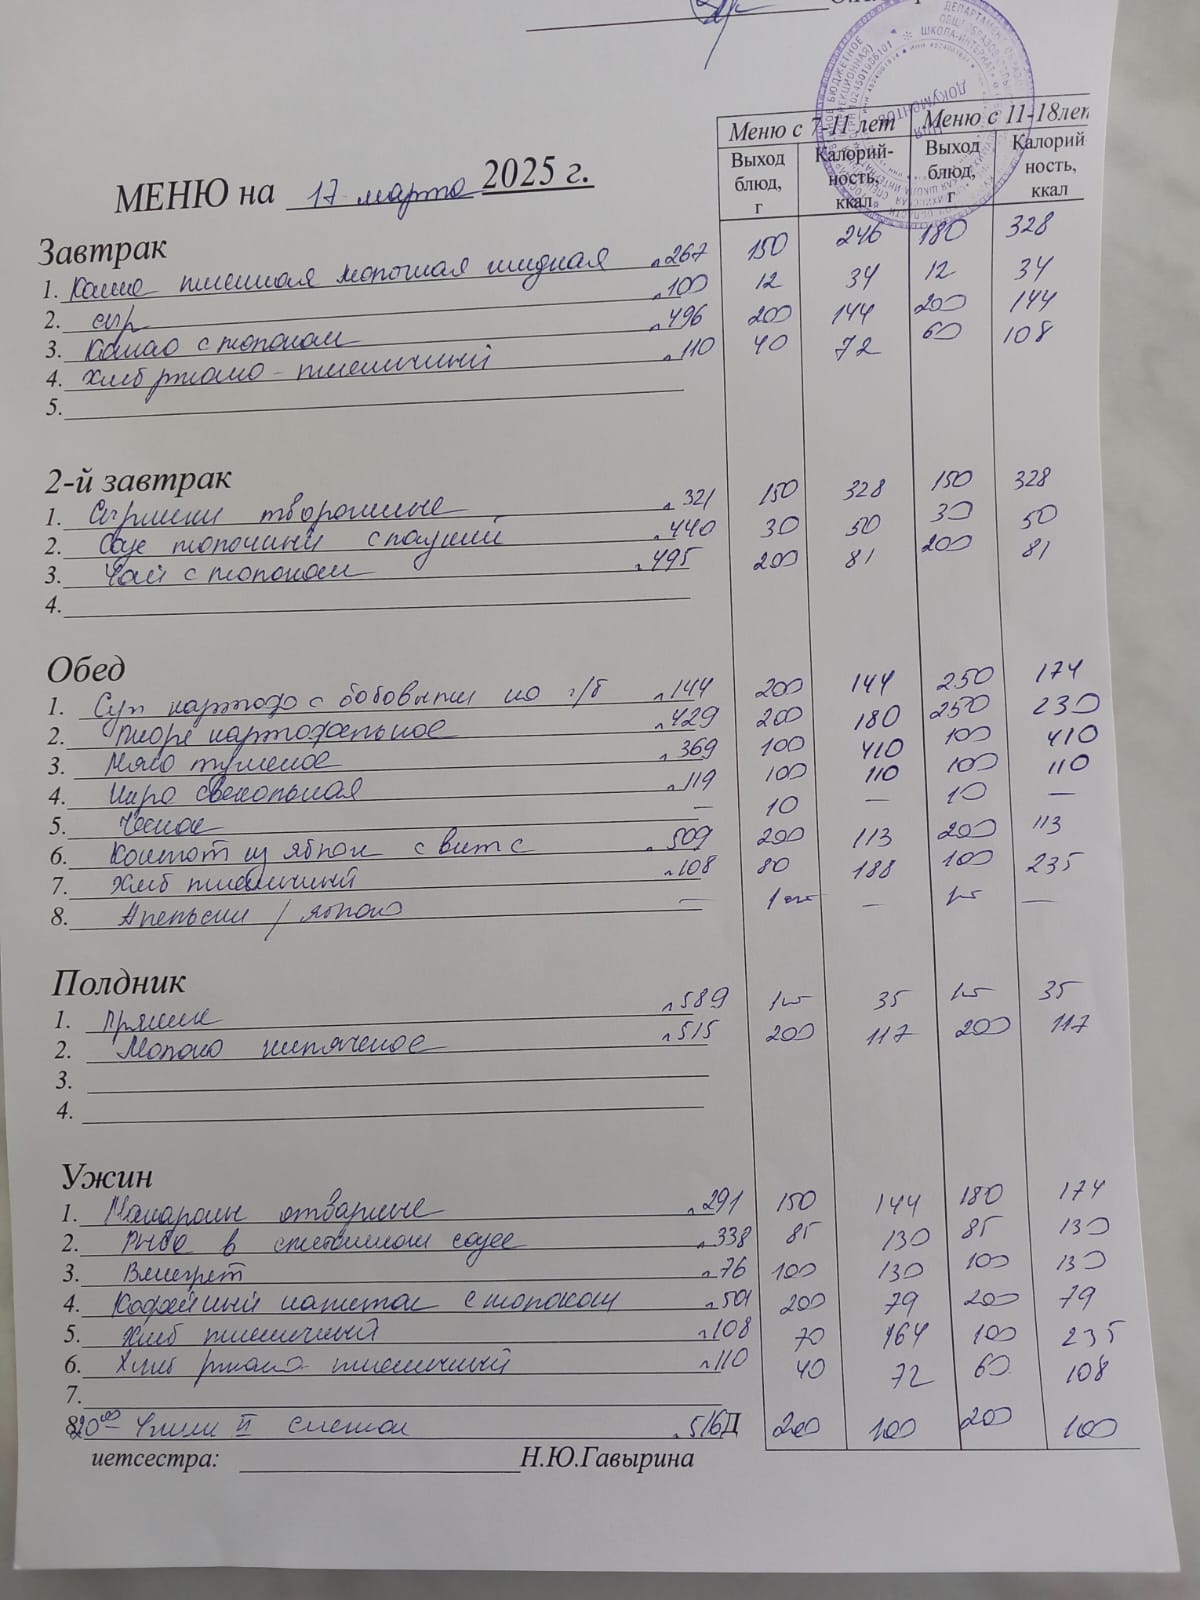 Меню с 7-11 лет Меню с 11-18лет
Выход блюд, г Калорий-ность, ккал Выход блюд, г Калорий ность, ккал
МЕНЮ на 17 марта 2025 г.
Завтрак
1. Каша пшенная молочная жидкая № 267 150 246 180 328
2. сыр № 100 12 34 12 34
3. Какао с молоком № 496 200 144 200 144
4. Хлеб ржано-пшеничный № 110 40 72 60 108
5.
2-й завтрак
1. Сырники творожные № 321 150 328 150 328
2. Соус молочный сладкий № 440 30 50 30 50
3. Чай с молоком № 495 200 81 200 81
4.
Обед
1. Суп картоф с бобовыми на м/б № 144 200 144 250 174
2. Пюре картофельное № 429 200 180 250 230
3. Мясо тушеное № 369 100 410 100 410
4. Икра свекольная № 119 100 110 100 110
5. Чеснок — 10 — 10 —
6. Компот из яблок с вит с № 509 200 113 200 113
7. Хлеб пшеничный № 108 80 188 100 235
8. Апельсин / яблоко — 1 шт — 1шт —
Полдник
1. Пряник № 589 1шт 35 1шт 35
2. Молоко кипяченое № 515 200 117 200 117
3.
4.
Ужин
1. Макароны отварные № 291 150 144 180 174
2. Рыба в сметанном соусе № 338 85 130 85 130
3. Винегрет № 76 100 130 100 130
4. Кофейный напиток с молоком № 501 200 79 200 79
5. Хлеб пшеничный № 108 70 164 100 235
6. Хлеб ржано-пшеничный № 110 40 72 60 108
7.
8. 20⁰⁰ II № 516Д 200 100 200 100
иетсестра: Н.Ю.Гавырина